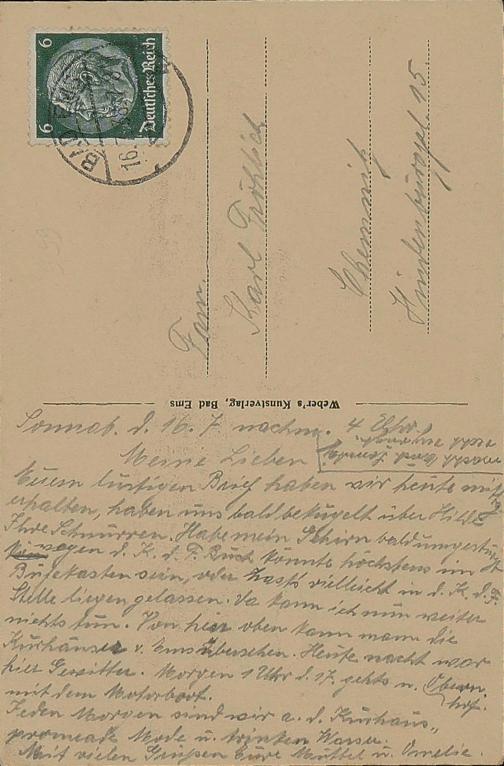 6 Deutsches Reich 6
BAD EMS
16.
Fam.
Karl Fröhlich
Chemnitz
Hindenburgpl. 15.
Weber's Kunstverlag, Bad Ems
Sonnab. d. 16. 7. nachm. 4 Uhr.
Meine Lieben
Euern lustigen Brief haben wir heute
erhalten, haben uns bald bekugelt über
Ihre Schnurren. Habe mein Gehirn bald umgestürzt
wegen d. K. d. F. Buch könnte höchstens im
Bufekasten sein, oder hasts vielleicht in d. K. d. F.
Stelle liegen gelassen. Da kann ich nun weiter
nichts tun. Von hier oben kann man die
Kurhäuser v. Ems übersehen. Heute nacht war
hier Gewitter. Morgen 1 Uhr d. 17. gehts n. Obern
hof.
mit dem Motorboot.
Jeden Morgen sind wir a. d. Kurhaus
promenade Mode u. trinken Wasser.
Mit vielen Grüßen Eure Muttel u. Amelie.